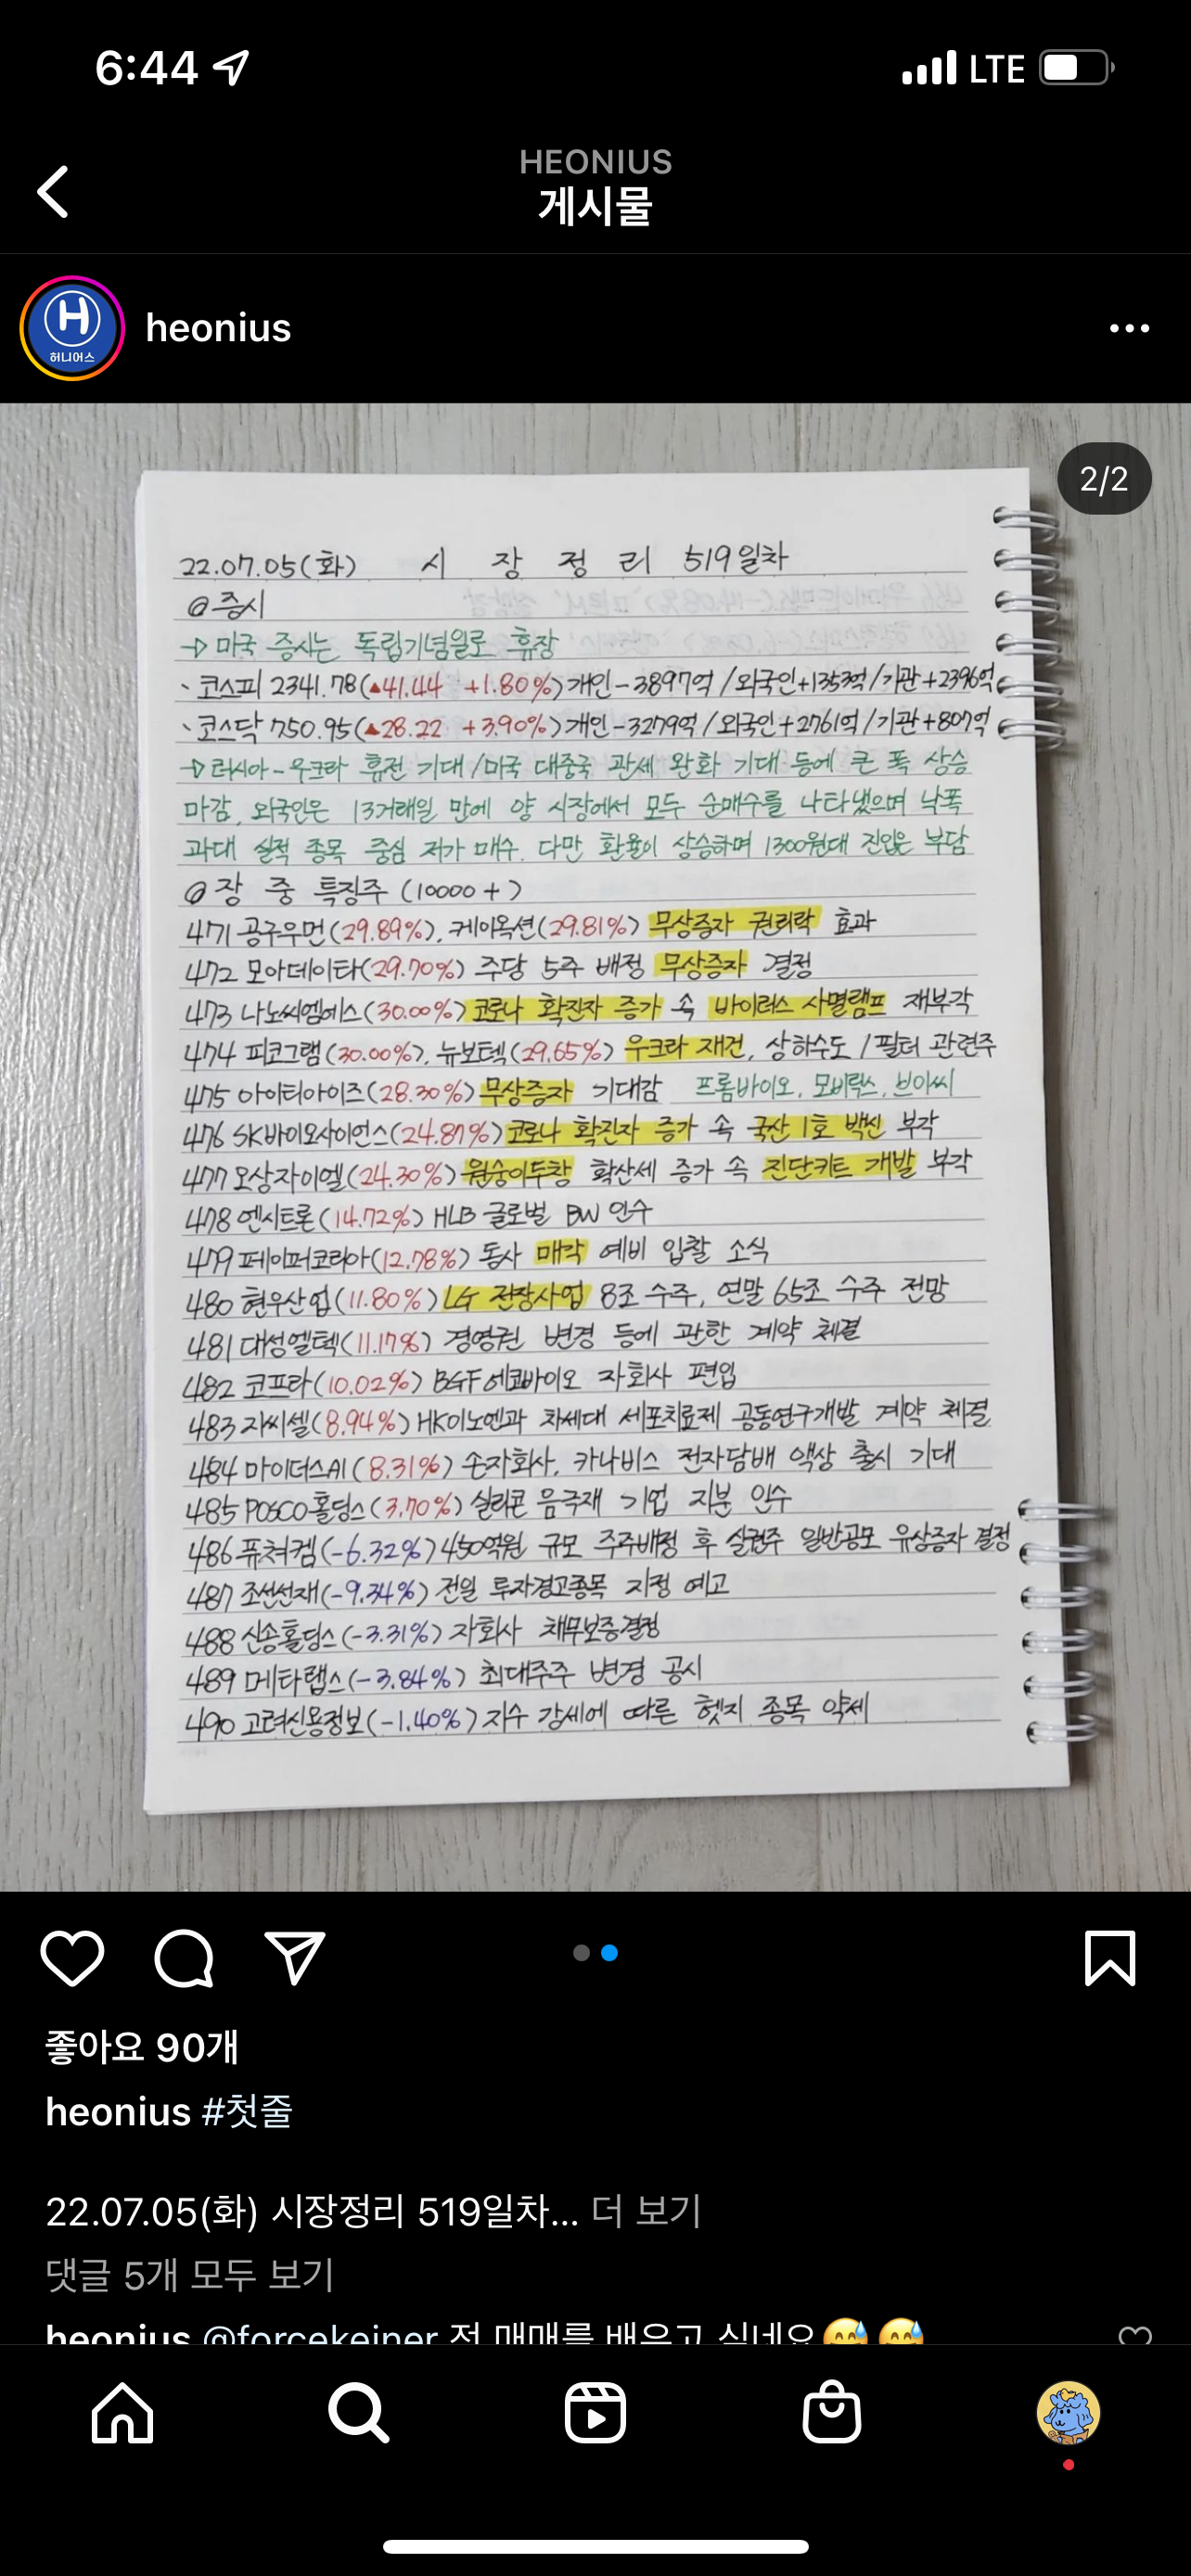 6:44
LTE
HEONIUS
게시물
H
허니어스
heonius
2/2
22.07.05(화) 시 장 정 리 519일차
@증시
→ 미국 증시는 독립기념일로 휴장
· 코스피 2341.78(▲41.44 +1.80%)개인-3897억/외국인+1353억/기관+2396억
· 코스닥 750.95(▲28.22 +3.90%)개인-3279억/외국인+2761억/기관+807억
→러시아-우크라 휴전 기대/미국 대중국 관세 완화 기대 등에 큰 폭 상승
마감, 외국인은 13거래일 만에 양 시장에서 모두 순매수를 나타냈으며 낙폭
과대 실적 종목 중심 저가 매수. 다만 환율이 상승하며 1300원대 진입은 부담
@장 중 특징주 (10000+)
471 공구우먼(29.89%), 케이옥션(29.81%) 무상증자 권리락 효과
472 모아데이타(29.70%) 주당 5주 배정 무상증자 결정
473 나노씨엠에스(30.00%)코로나 확진자 증가 속 바이러스 사멸램프 재부각
474 피코그램(30.00%), 뉴보텍(29.65%) 우크라 재건, 상하수도/필터 관련주
475 아이티아이즈(28.30%)무상증자 기대감 프롬바이오, 모비릭스, 브이씨
476 SK바이오사이언스(24.87%)코로나 확진자 증가 속 국산 1호 백신 부각
477 오상자이엘(24.30%)원숭이두창 확산세 증가 속 진단키트 개발 부각
478 엔시트론(14.72%) HLB 글로벌 BW 인수
479 페이퍼코리아(12.78%) 동사 매각 예비 입찰 소식
480 현우산업(11.80%)LG 전장사업 8조 수주, 연말 65조 수주 전망
481 대성엘텍(11.17%) 경영권 변경 등에 관한 계약 체결
482 코프라(10.02%) BGF에코바이오 자회사 편입
483 지씨셀(8.94%)HK이노엔과 차세대 세포치료제 공동연구개발 계약 체결
484 마이더스AI(8.31%) 손자회사, 카나비스 전자담배 액상 출시 기대
485 POSCO홀딩스(3.70%) 실리콘 음극재 기업 지분 인수
486 퓨쳐켐(-6.32%)450억원 규모 주주배정 후 실권주 일반공모 유상증자 결정
487 조선선재(-9.34%) 전일 투자경고종목 지정 예고
488 신송홀딩스(-3.31%) 자회사 채무보증결정
489 메타랩스(-3.84%) 최대주주 변경 공시
490 고려신용정보(-1.40%) 지수 강세에 따른 헷지 종목 약세
좋아요 90개
heonius #첫줄
22.07.05(화) 시장정리 519일차... 더 보기
댓글 5개 모두 보기
heonius @forcekeiner 전 매매를 배우고 싶네요😅 😅